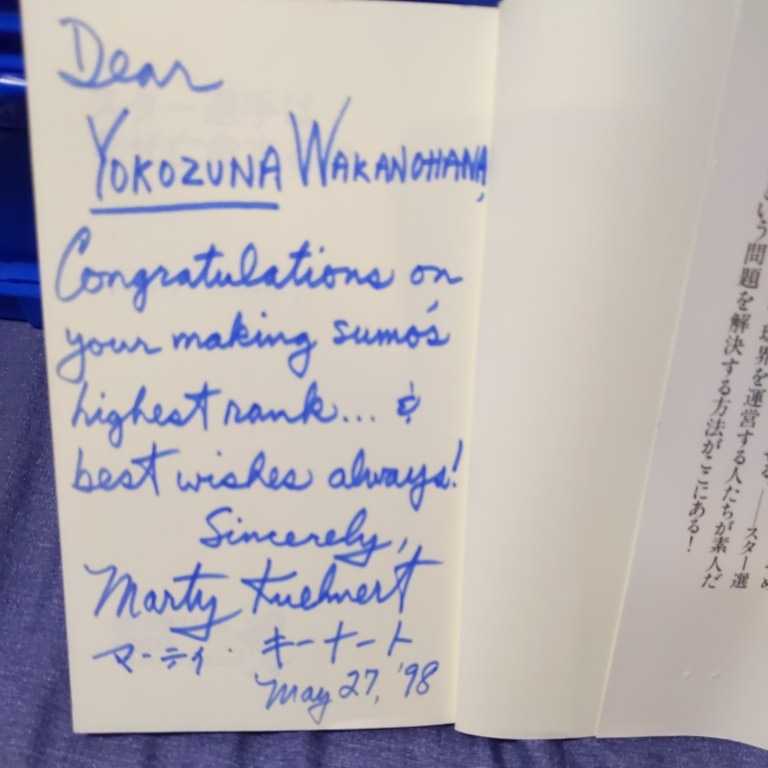 Dear
YOKOZUNA WAKANOHANA,
Congratulations on
your making sumo's
highest rank... &
best wishes always!
Sincerely,
Marty Kuehnert
マーティ・キーナート
May 27, '98
球界を運営する人たちが素人だ
という問題を解決する方法がここにある!
スター選